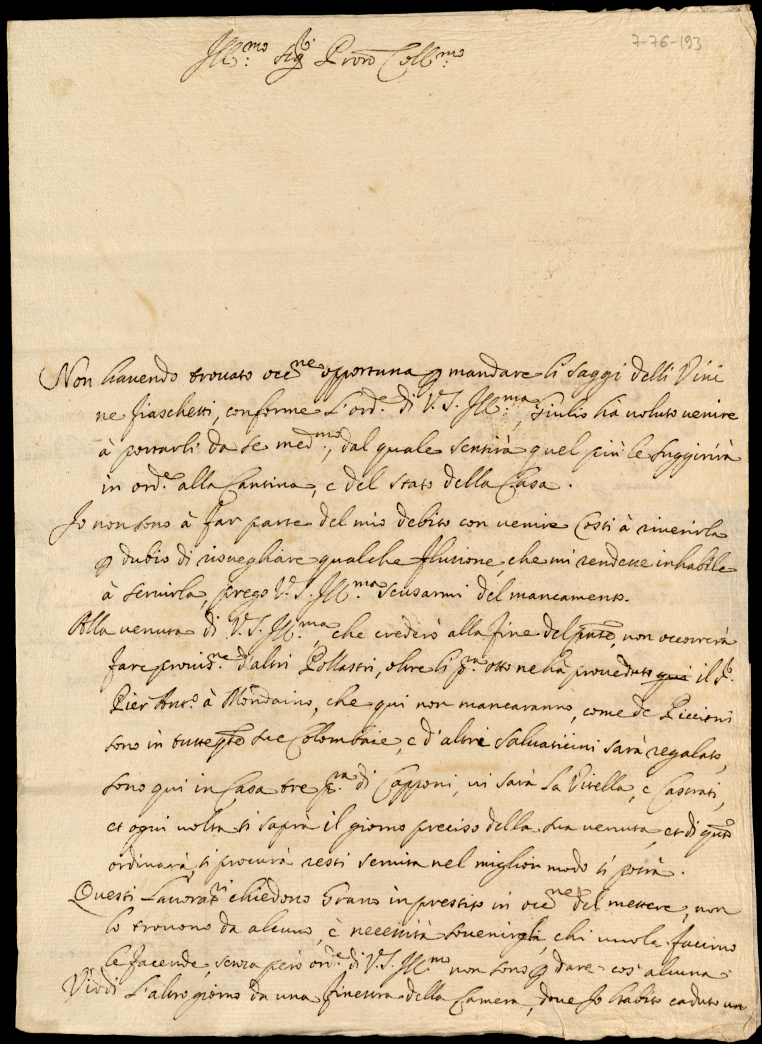 7-76-193
Ill.mo Sig.r Pron Coll.mo
Non havendo trovato occ.ne opportuna p mandare li saggi delli Vini
ne fiaschetti, conforme l'ord.e di V.S. Ill.ma, Giulio hà voluto venire
à portarli da se med.mo, dal quale sentirà quel più le suggirirà
in ord.e alla Cantina, e del stato della Casa.
Io non sono à far parte del mio debito con venire costì à riverirla
p dubio di risvegliare qualche flussione, che mi rendesse inhabile
à servirla, prego V.S. Ill.ma scusarmi del mancamento.
Alla venuta di V.S. Ill.ma, che crederò alla fine del pnte, non occorrerà
fare provis.ne d'altri Pollastri, oltre li p.ra otto ne hà proveduto il S.r
Pier Ant.o à Mondaino, che qui non mancaranno, come de Piccioni
sono in tutte qste sue Colombaie, e d'altri salvaticini sarà regalato,
sono qui in Casa tre p.ra di Capponi, vi sarà la Vitella, e Castrati,
et ogni volta si saprà il giorno preciso della sua venuta, et di qto
ordinarà, si procurà resti servita nel miglior modo si potrà.
Questi Lavorat.ri chiedono Grano in prestito in occ.ne del mettere, non
lo trovono da alcuno, è necessità sovenirli, chi vuole faccino
le facende, senza però ord.e di V.S. Ill.mo non sono p dare cos' alcuna
Viddi l'altro giorno da una finestra della Camera, dove Io habito caduto un